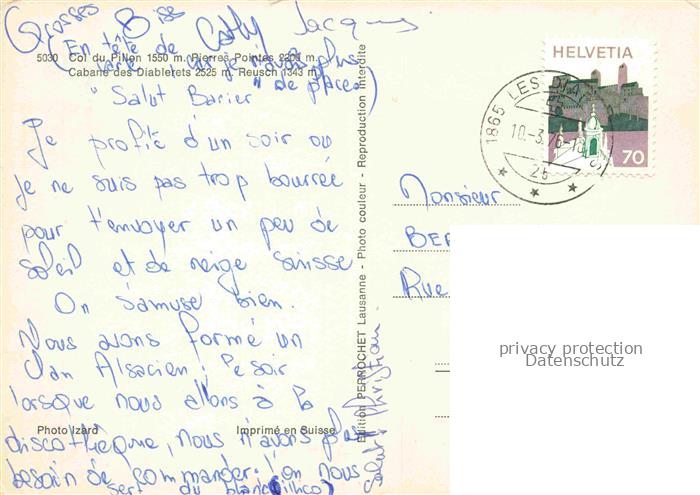 Grosses Bises Cathy Jacques
(En tête de
carte car je n'avais plus
de place)
5030 Col du Pillon 1550 m. Pierres Pointes 2209 m.
Cabane des Diablerets 2525 m. Reusch 1343 m.
" Salut Barier "
Je profite d'un soir où
je ne suis pas trop bourrée
pour t'envoyer un peu de
soleil et de neige suisse
On s'amuse bien.
Nous avons formé un
clan Alsacien; le soir
lorsque nous allons à la
discothèque, nous n'avons plus
besoin de commander. l'on nous
sert du blanc
Photo Izard
Imprimé en Suisse
Edition PERROCHET Lausanne - Photo couleur - Reproduction interdite
Salut Christian
HELVETIA
70
1865 LES
10.-3.76-18
Monsieur
BER
Rue
privacy protection
Datenschutz